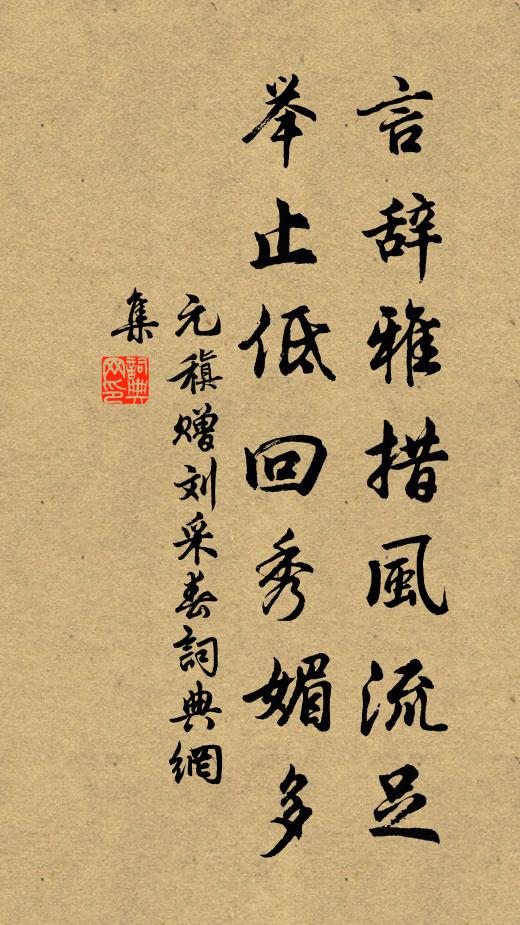 言辞雅措風流足
举止低回秀媚多
元稹赠刘采春詞典網
集
詞典網印